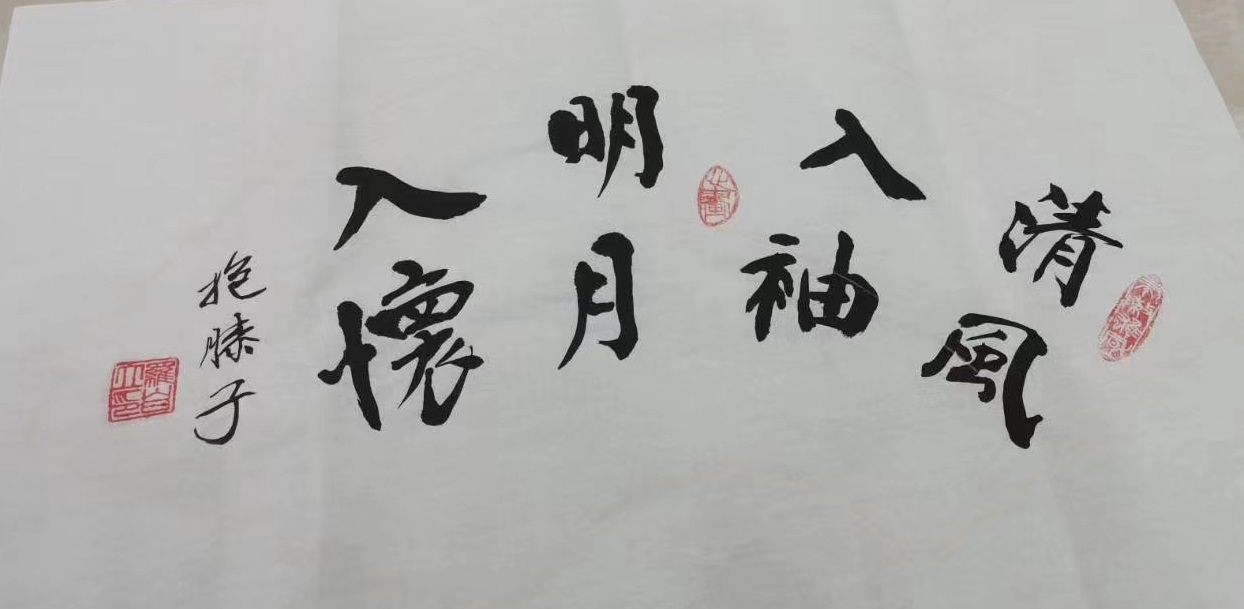 清風
入袖
明月
入懷
抱膝子